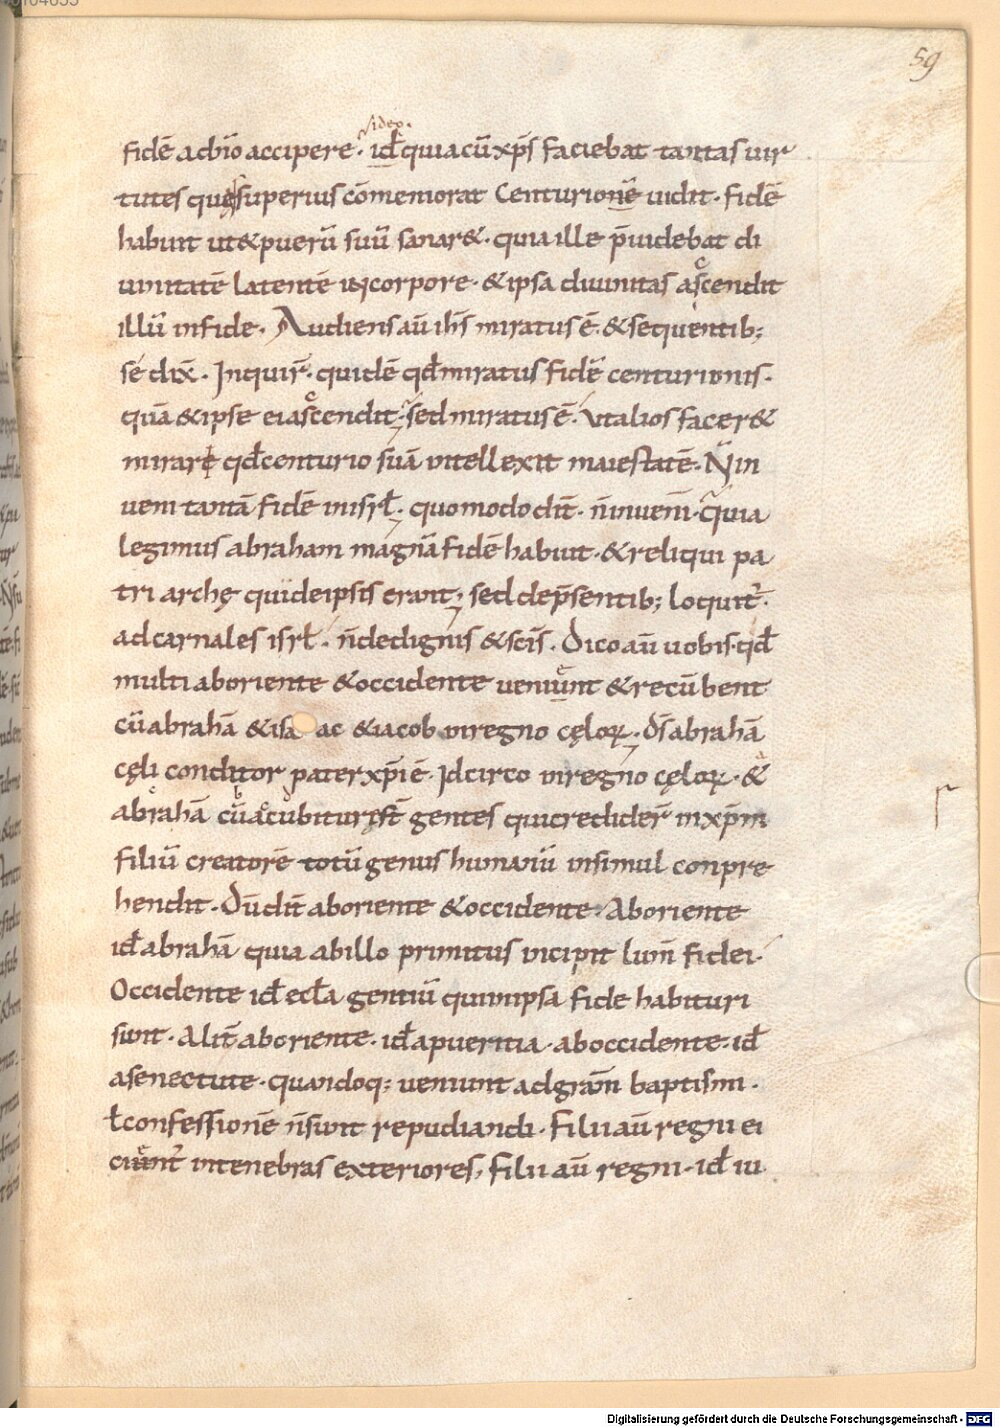 59
video.
fidē adn̄o accipere · id̄ quia cū xp̄s faciebat tantas uir
tutes quęsuperius cōmemorat Centurionē uidit · fidē
habuit ut &puerū suū sanar& · quia ille p̄uidebat di
uinitatē latentē in corpore · & ipsa diuinitas ascendit
illū in fide · Audiens aū ih̄s miratus ē · & sequentib;
se dix̄ · Inquir̄ · quidē qd̄ miratus fidē centurionis ·
quā & ipse ei ascendit · sed miratus ē · ut alios facer&
mirare qd̄ centurio suā intellexit maiestatē · N̄ in
ueni tantā fidē in isrł · quomodo dīt · n̄ inueni · quia
legimus abraham magnā fidē habuit · & reliqui pa
tri archę qui deipsis erant; sed dep̄sentib; loquit̄ ·
ad carnales isrł · n̄ dedignis & sc̄is · Dico aū uobis · qd̄
multi aboriente & occidente ueniunt & recū bent
cū abrahā & isa ac & iacob in regno cęloꝝ · d̄s abrahā
cęli conditor pater xp̄i ē · Idcirco in regno cęloꝝ · &
abrahā cū accubituri st̄ gentes qui credider̄ in xp̄m
filiū creatorē totū genus humanū insimul conpre
hendit · Dū dīt aboriente & occidente · Aboriente
id̄ abrahā quia abillo primitus incipit lum̄ fidei ·
Occidente id̄ eccła gentiū qui in ipsa fide habituri
sunt · Alit̄ aboriente · id̄ apueritia · aboccidente · id̄
asenectute · quandoq; ueniunt ad grām baptismi ·
ł confessionē n̄ sunt repudiandi · Filii aū regni ei
ciunt̄ in tenebras exteriores, filii aū regni · id̄ iu
Digitalisierung gefördert durch die Deutsche Forschungsgemeinschaft - DFG